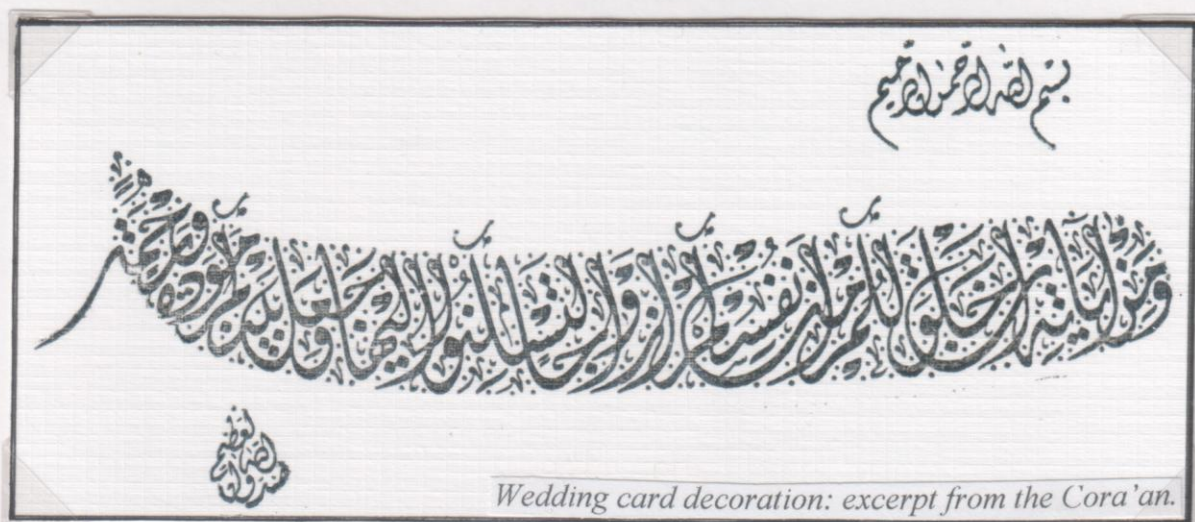 بسم الله الرحمن الرحيم
ومن آياته أن خلق لكم من أنفسكم أزواجا لتسكنوا إليها وجعل بينكم مودة ورحمة
صدق الله العظيم
Wedding card decoration: excerpt from the Cora'an.